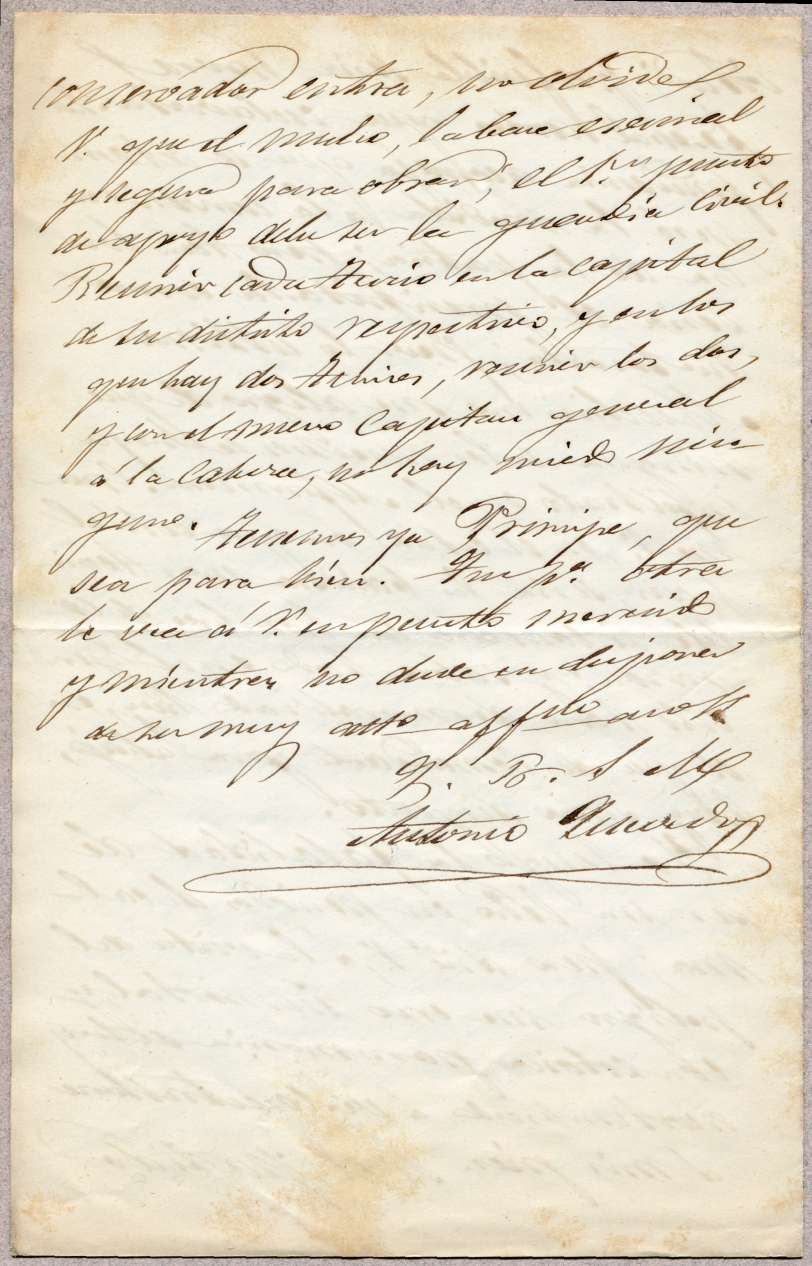 conservador entra, no olvide
V. que el medio, la base esencial
y segura para obrar, el 1.er punto
de apoyo debe ser la guardia Civil.
Reunir cada tercio en la capital
de su distrito respectivo, y en los
que hay dos tercios, reunir los dos,
y con el nuevo Capitan general
á la cabeza, no hay miedo nin-
guno. Tenemos ya Principe, que
sea para bien. Tempª. otra
le vea á V. en puesto merecido
y mientras no dude en disponer
de su muy atto affmo
Q. B. S. M
Antonio